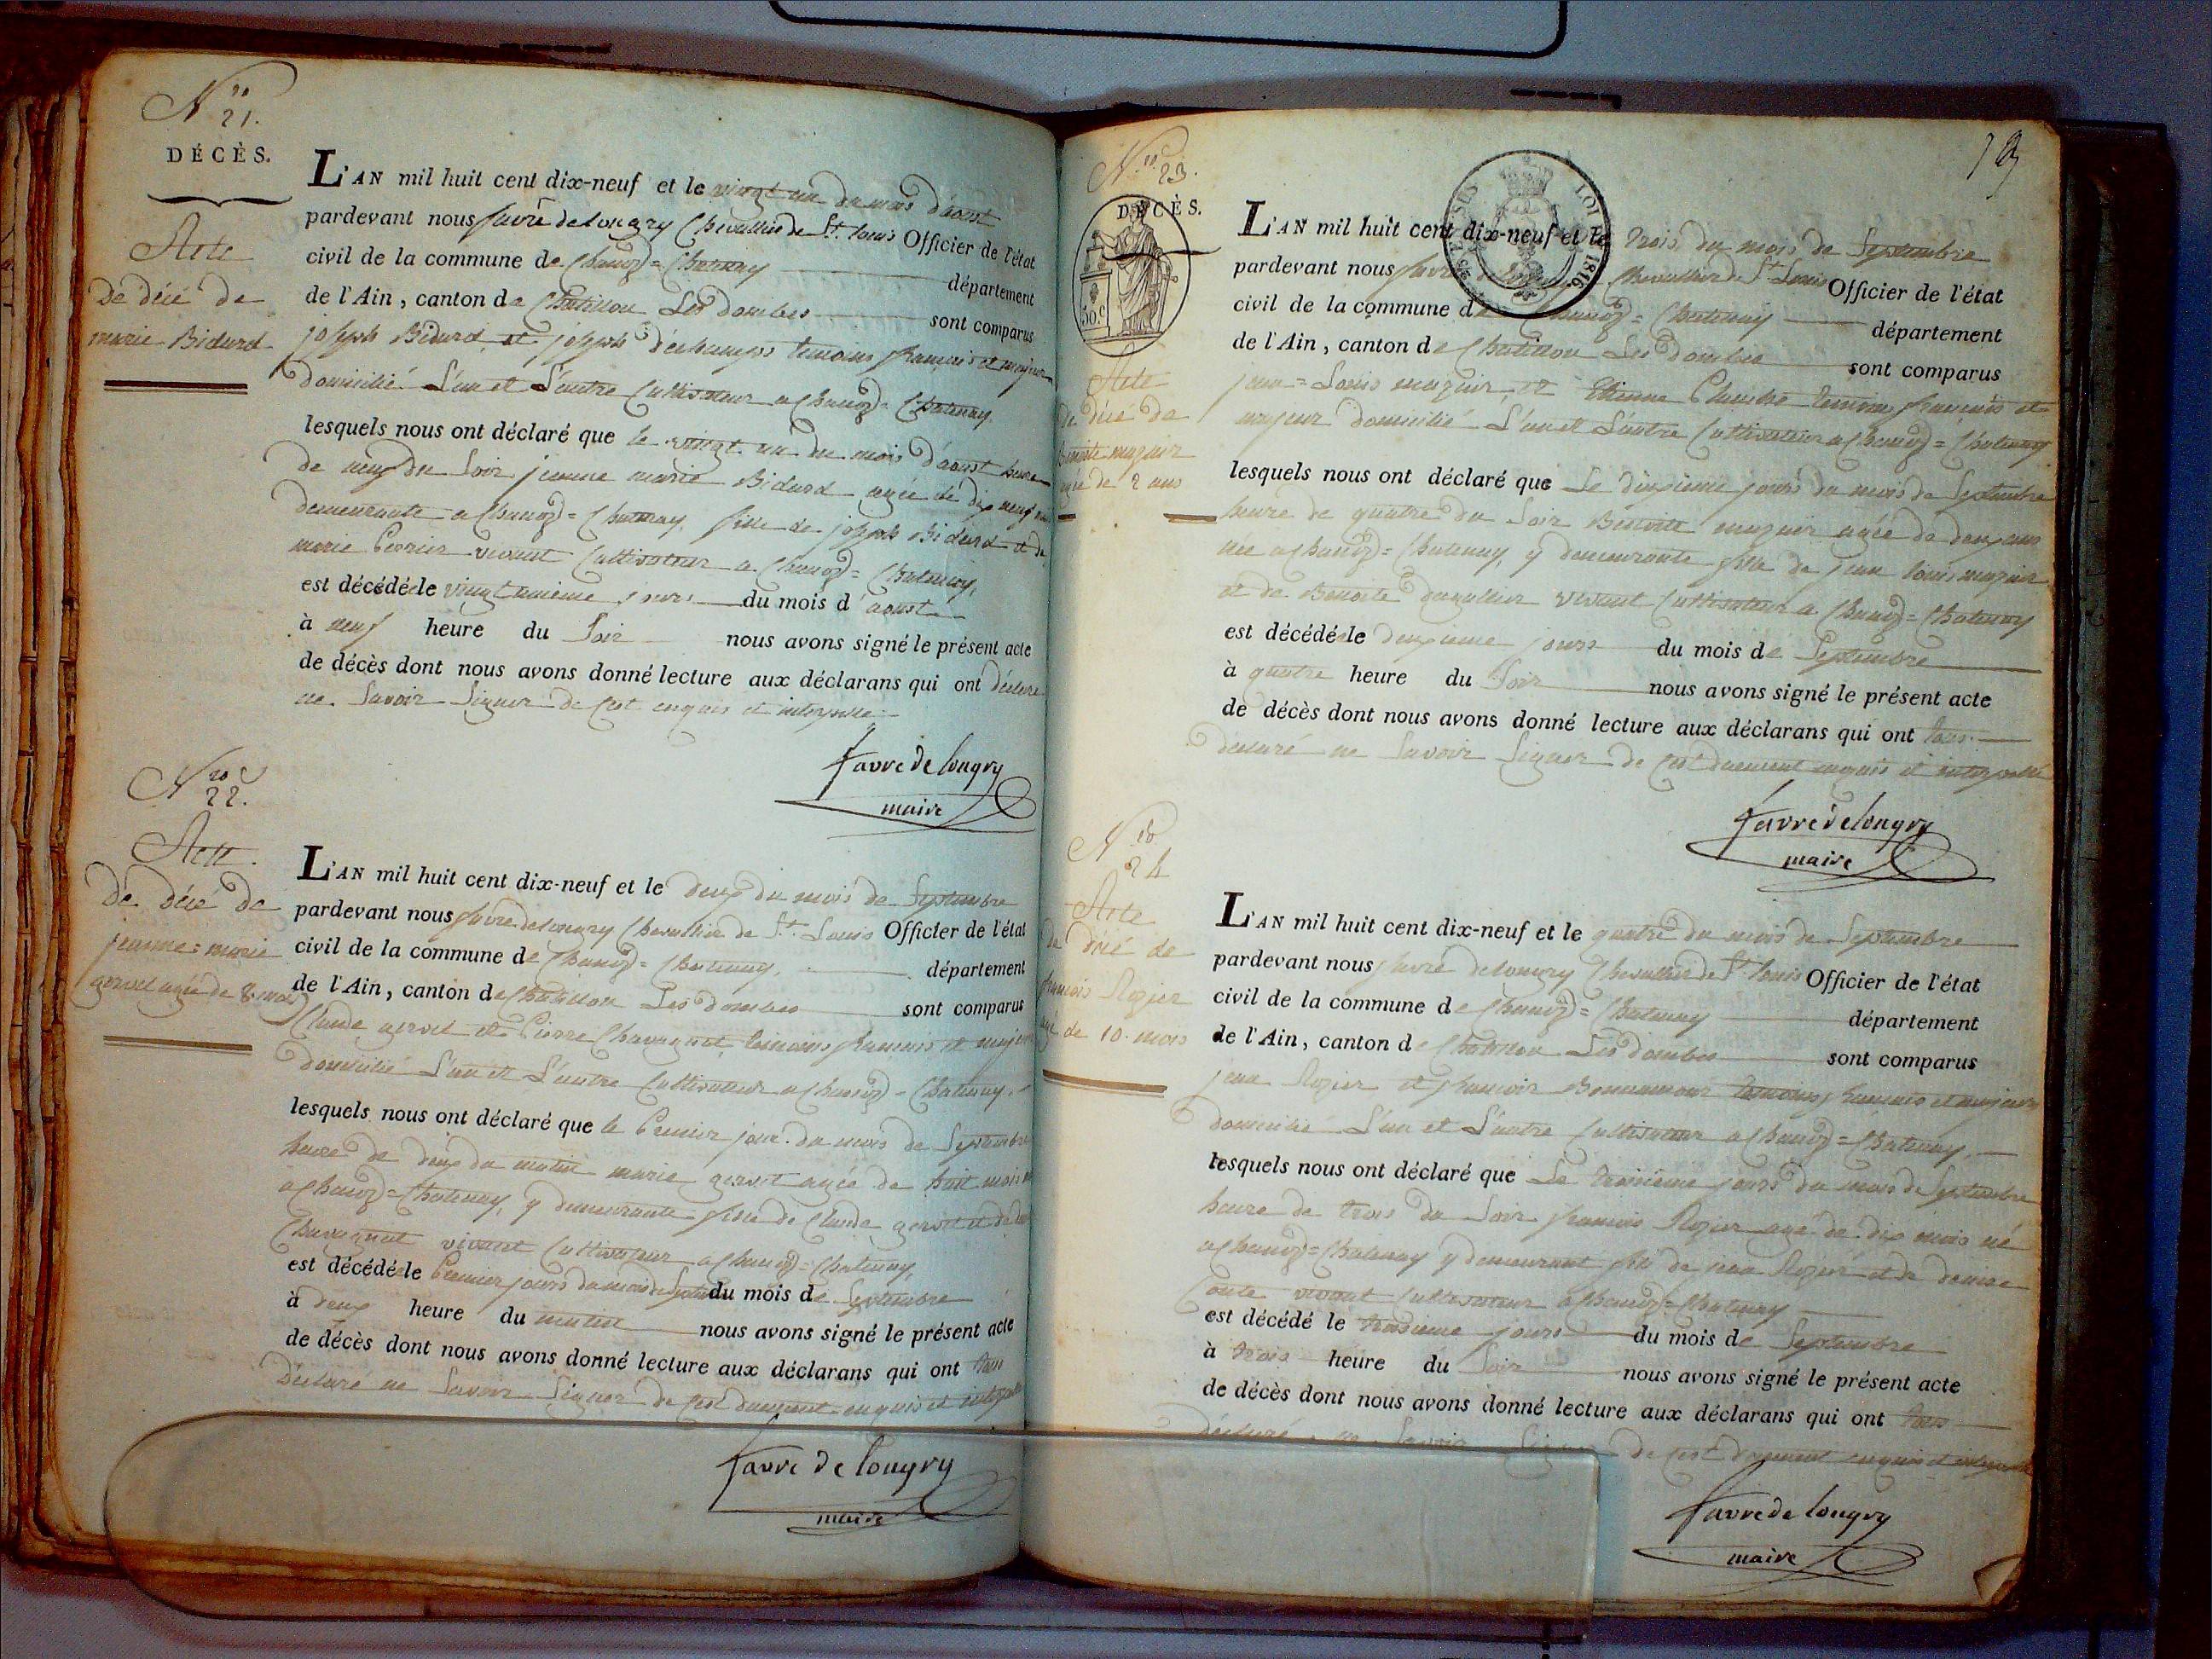 N.ro 21.
DÉCÈS.
Acte
de décé de
marie Bidard
L'AN mil huit cent dix-neuf et le vingt un du mois d'aoust
pardevant nous favre de longry Chevallier de St. Louis Officier de l'état
civil de la commune de Chanoz=Chatenay département
de l'Ain, canton de Chatillon Les Dombes sont comparus
joseph Bidard et joseph déchamps temoins français et majeur
domicilié L'un et L'autre Cultivateur a Chanoz=Chatenay
lesquels nous ont déclaré que le vingt un du mois d'aoust heure
de neuf du Soir jeanne marie Bidard agée de dix neuf
demeurante a Chanoz=Chatenay, fille de joseph Bidard et de
marie Perrier vivant Cultivateur a Chanoz=Chatenay,
est décédée le vingt unieme jours du mois d'aoust
à neuf heure du Soir nous avons signé le présent acte
de décès dont nous avons donné lecture aux déclarans qui ont déclaré
ne Savoir Signer de ce enquis et interpellé
favre de longry
maire
N.ro 22.
Acte
de décé de
jeanne=marie
gervet agée de 8 mois
L'AN mil huit cent dix-neuf et le deux du mois de Septembre
pardevant nous favre de longry Chevallier de St. Louis Officier de l'état
civil de la commune de Chanoz=Chatenay, département
de l'Ain, canton de Chatillon Les Dombes sont comparus
Claude gervet et Pierre Chavagnat temoins francais et majeur
domicilié L'un et L'autre Cultivateur a Chanoz=Chatenay.
lesquels nous ont déclaré que le Premier jour du mois de Septembre
heure de deux du matin marie gervet agée de huit mois
a Chanoz=Chatenay, y demeurante fille de Claude gervet et de
Chavagnat vivant Cultivateur a Chanoz=Chatenay,
est décédée le Premier jours du mois de du mois de Septembre
à deux heure du matin nous avons signé le présent acte
de décès dont nous avons donné lecture aux déclarans qui ont tous
Déclaré ne Savoir Signer de ce duement enquis et interpellé
favre de longry
maire
19
N.ro 23.
DÉCÈS.
30.c
1816
Acte
de décé de
Benoite mazuir
agée de 2 ans
L'AN mil huit cent dix-neuf et le trois du mois de Septembre
pardevant nous favre de longry Chevallier de St. Louis Officier de l'état
civil de la commune de Chanoz=Chatenay département
de l'Ain, canton de Chatillon Les Dombes sont comparus
jean=Louis mazuir, et Etienne temoins francais et
majeur domicilié L'un et L'autre Cultivateur a Chanoz=Chatenay
lesquels nous ont déclaré que Le deuxieme jours du mois de Septembre
heure de quatre du Soir Benoite mazuir agée de deux ans
née a Chanoz=Chatenay, y demeurante fille de jean louis mazuir
et de Benoite vivant Cultivateur a Chanoz=Chatenay
est décédée le deuxieme jours du mois de Septembre
à quatre heure du Soir nous avons signé le présent acte
de décès dont nous avons donné lecture aux déclarans qui ont tous
déclaré ne Savoir Signer de ce duement enquis et interpellé
favre de longry
maire
N.ro 24
Acte
de décé de
francois Rozier
agé de 10. mois
L'AN mil huit cent dix-neuf et le quatre du mois de Septembre
pardevant nous favre de longry Chevallier de St. Louis Officier de l'état
civil de la commune de Chanoz=Chatenay département
de l'Ain, canton de Chatillon Les Dombes sont comparus
jean Rozier et francois Bonnamour temoins francais et majeur
domicilié L'un et L'autre Cultivateur a Chanoz=Chatenay.
lesquels nous ont déclaré que Le troisieme jours du mois de Septembre
heure de trois du Soir francois Rozier agé de dix mois né
a Chanoz=Chatenay y demeurant fils de jean Rozier et de denise
vivant Cultivateur a Chanoz=Chatenay
est décédé le troisieme jours du mois de Septembre
à trois heure du Soir nous avons signé le présent acte
de décès dont nous avons donné lecture aux déclarans qui ont tous
déclaré ne Savoir Signer de ce duement enquis et interpellé
favre de longry
maire